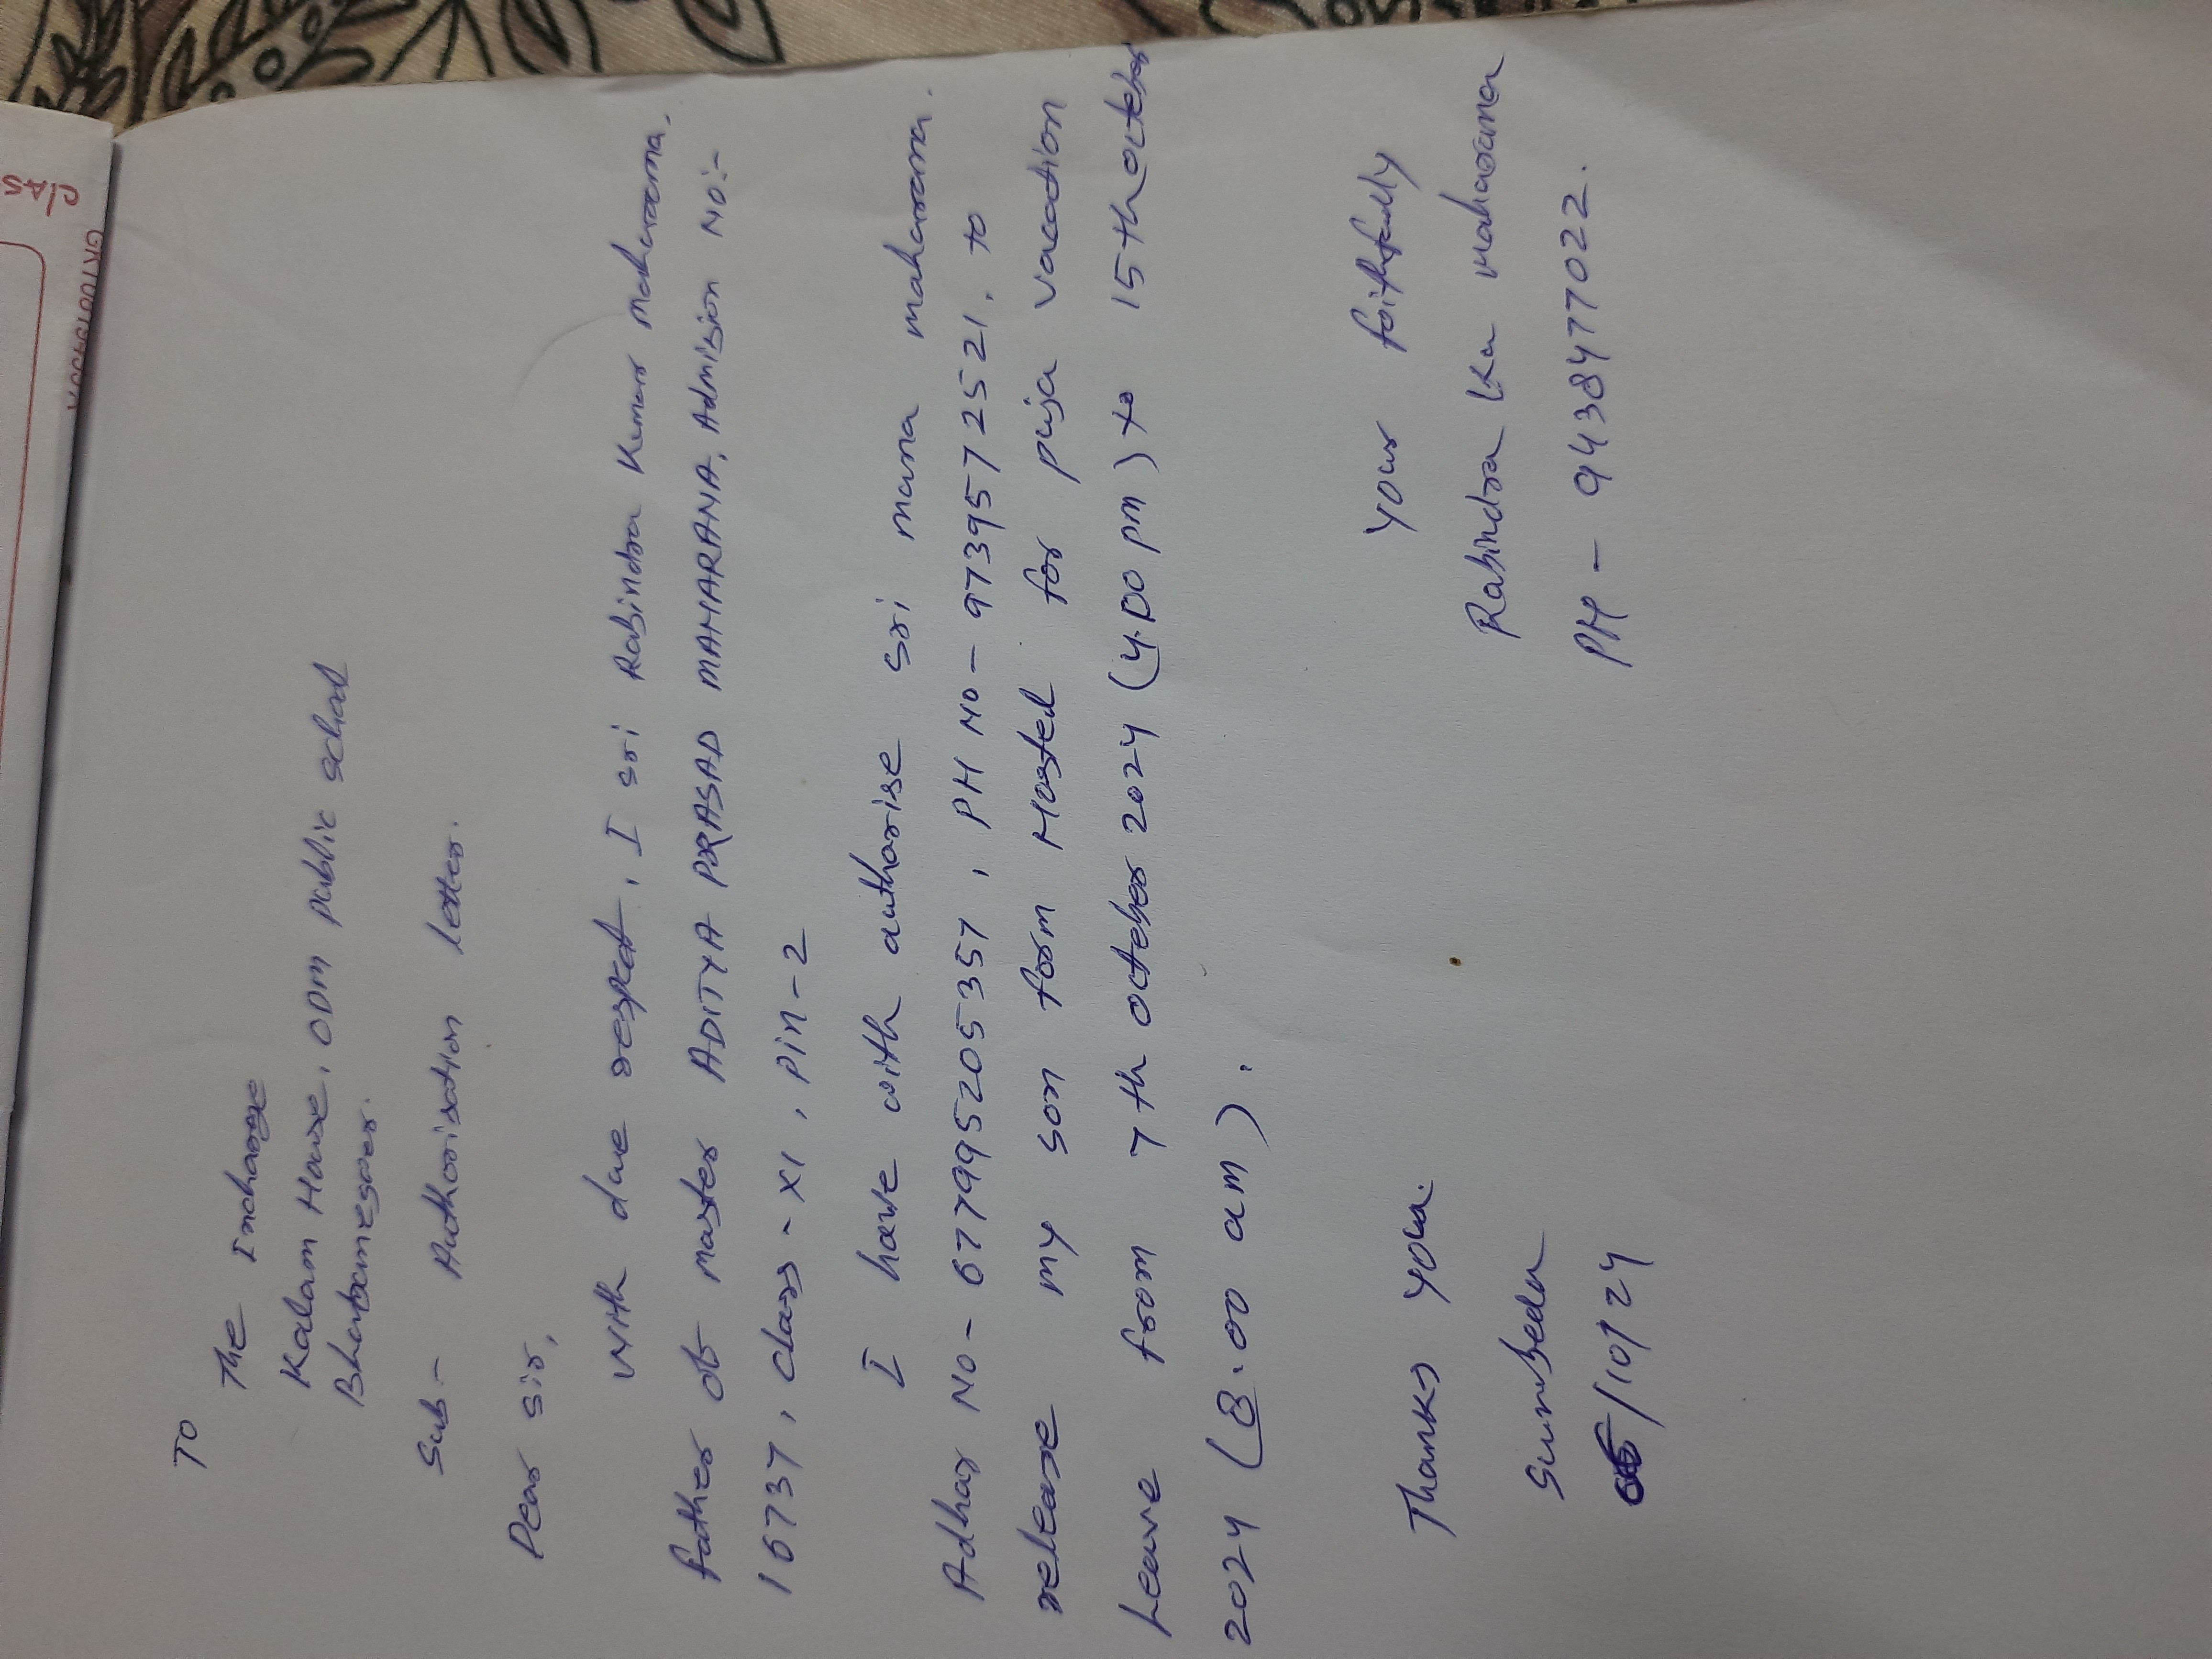 To
The Incharge
Kalam House, ODM public school
Bhubaneswar.
Sub:- Authorisation letter.
Dear Sir,
With due respect, I sri Rabindra Kumar maharana,
father of master ADITYA PRASAD MAHARANA, Admision No:-
16737, class - XI, Pin-2
I have with authorise sri mana maharana.
Adhar No - 677995205357, PH No - 9739572521, to
release my son form Hostel for puja vacation
Leave from 7th october 2024 (4.00 pm) to 15th october
2024 (8.00 am).
Thanks you. your faithfully
Sunabeda Rabindra Ku maharana
/10/24 PH - 9438477022.